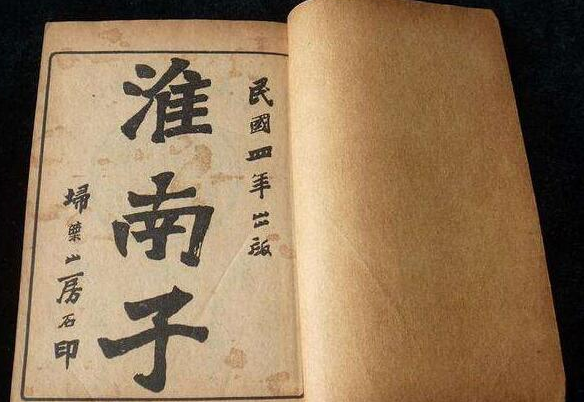 民國四年出版
淮南子
掃葉山房石印